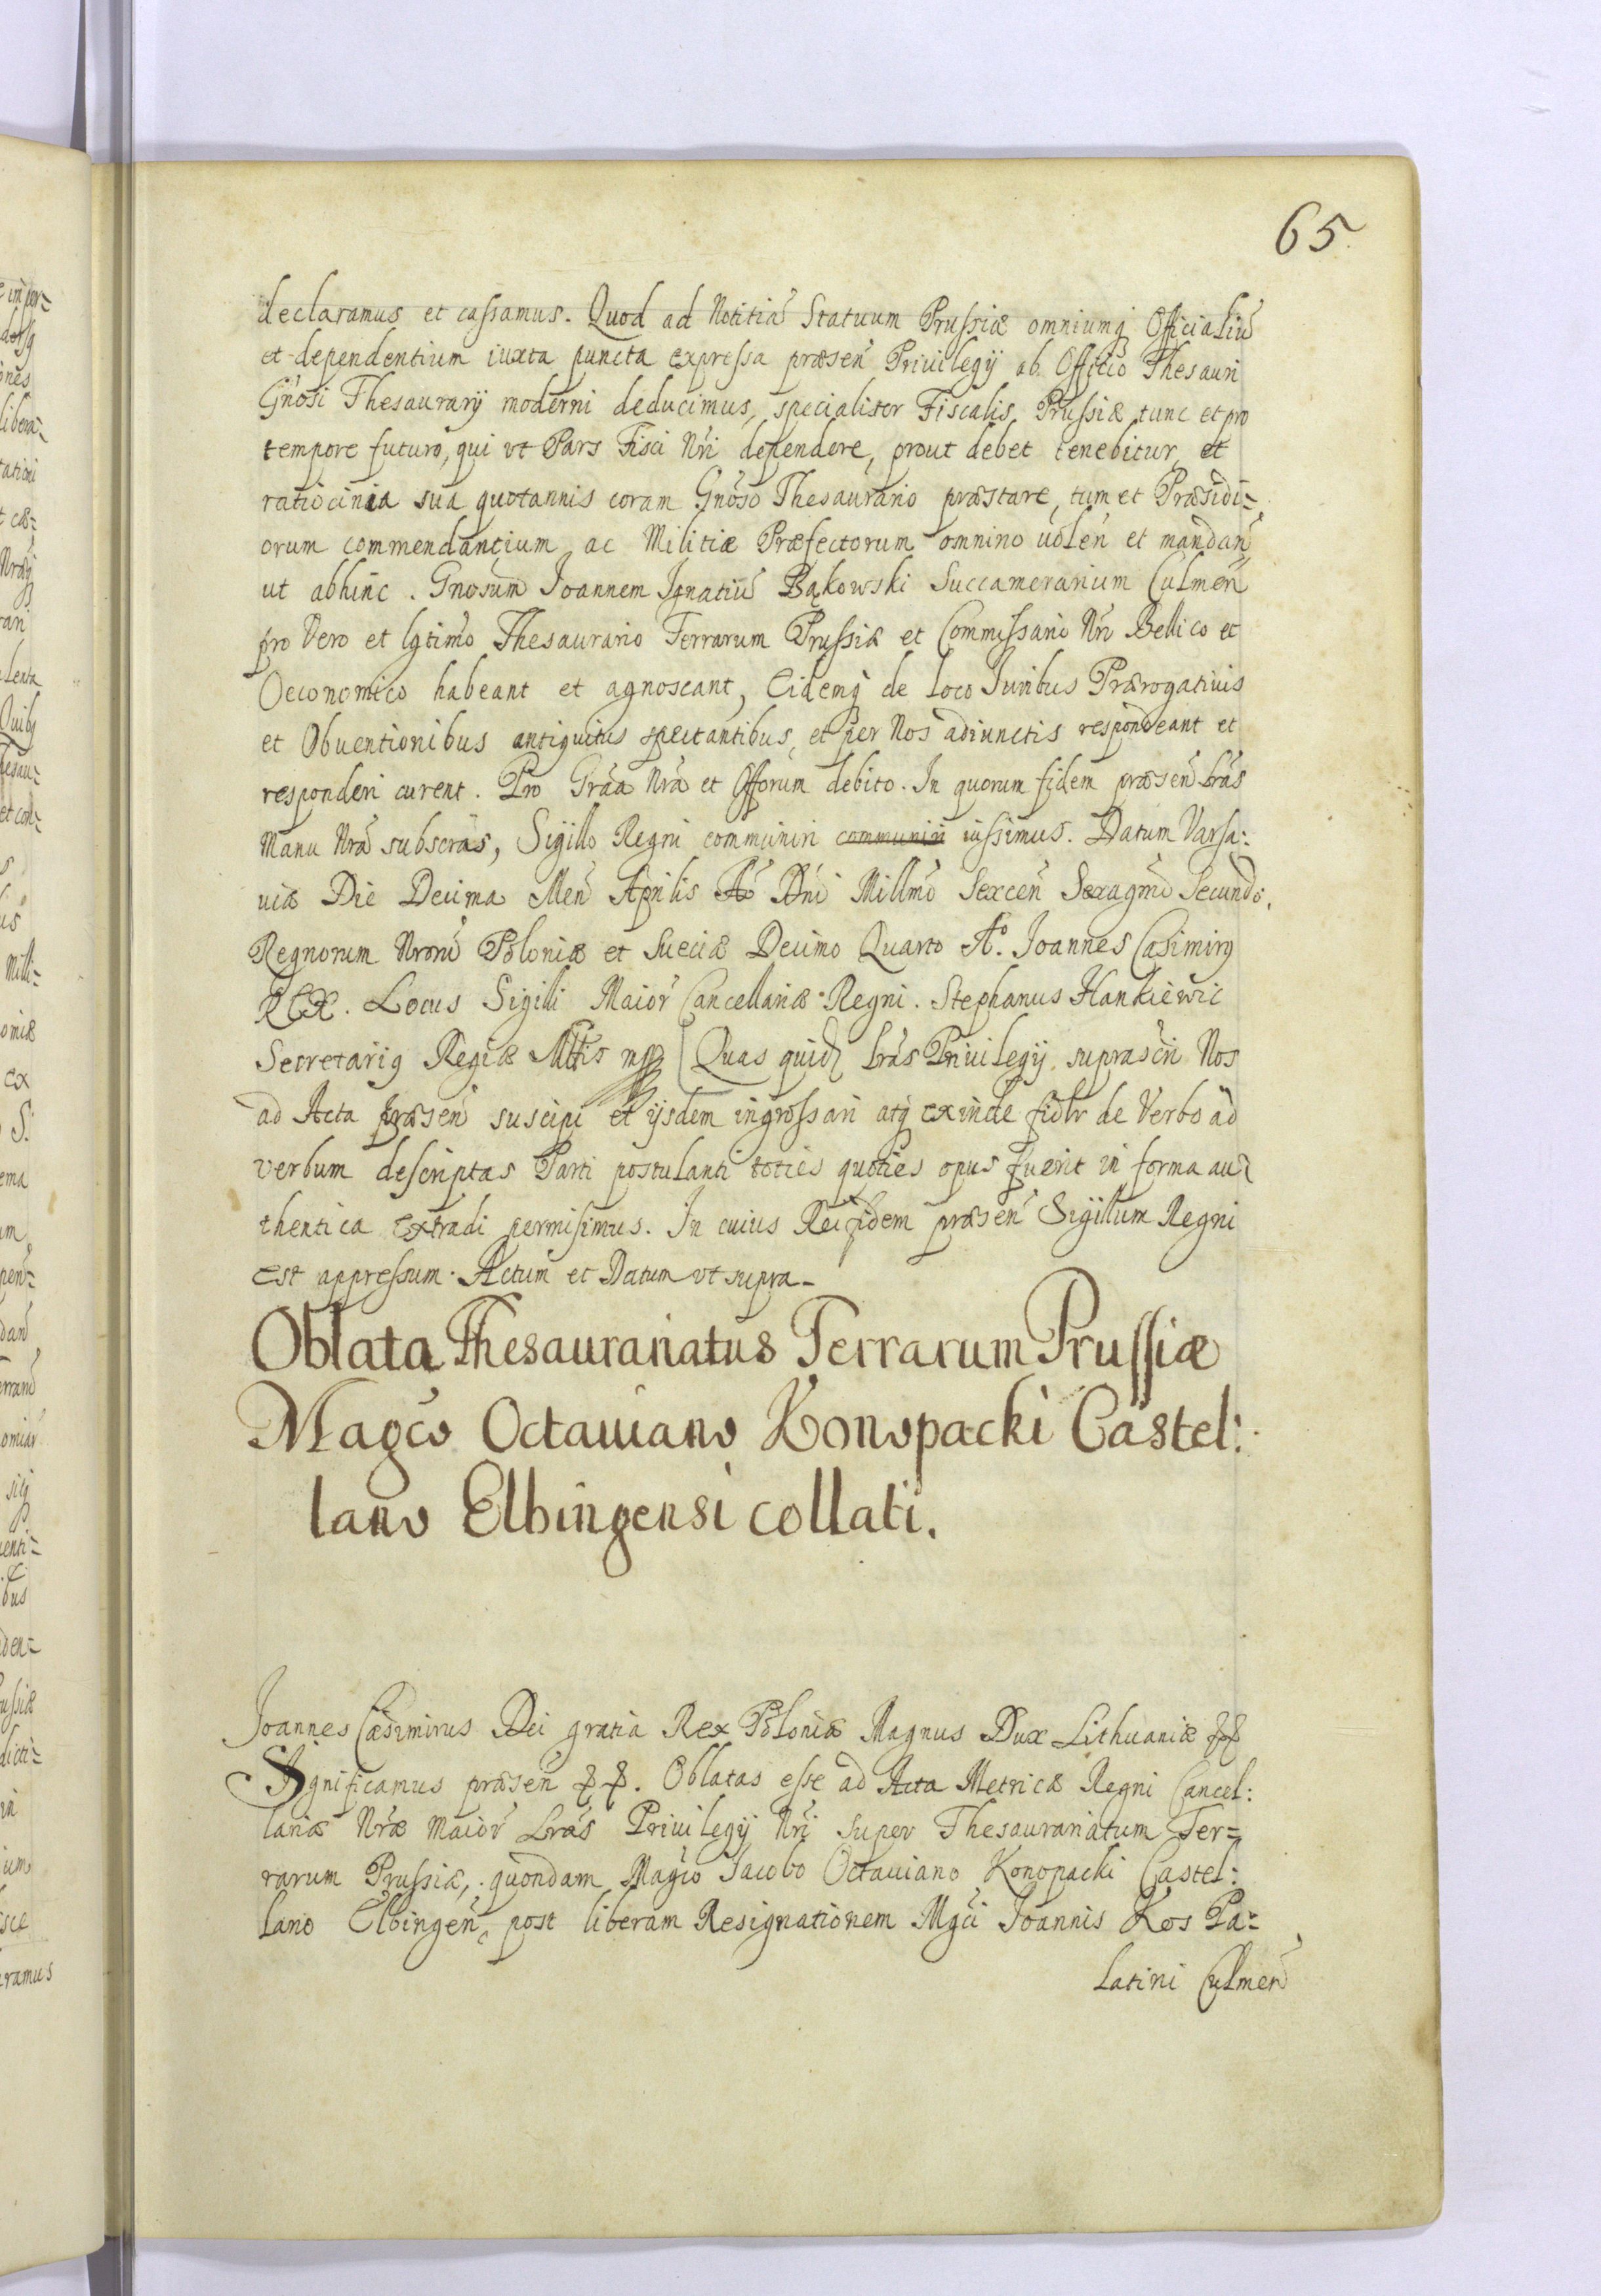 65.
declaramus et cassamus. Quod ad Notitiã Statuum Prussiæ omniumq Officialiũ
et dependentium iuxta puncta expressa præseñ Priuilegij ab Officio Thesauri
Gñosi Thesaurarij moderni deducimus, specialiter Fiscalis Prussiæ tunc et pro
tempore futuro, qui vt Pars Fisci Nri dependere, prout debet tenebitur, et
ratiocinia sua quotannis coram Gñoso Thesaurario præstare, tum et Præsidi=
orum commendantium ac Militiæ Præfectorum omnino uoleñ et mandañ
ut abhinc. Gnosum Joannem Ignatiũ Bąkowski Succamerarium Culmeñ
pro Vero et lgtimo Thesaurario Terrarum Prussiæ et Commissario Nro Bellico et
Oeconomico habeant et agnoscant, Eidemq de loco Juribus Prærogatiuis
et Obuentionibus antiquitus spectantibus, et per Nos adiunctis respondeant et
responderi curent. Pro Grãa Nrã et Offorum debito. In quorum fidem præseñ Lrãs
Manu Nrã subscrãs, Sigillo Regni communiri communiri iussimus. Datum Varsa:
uiæ Die Decima Meñ Aprilis Aõ Dñi Millmõ Sexceñ Sexagmõ Secundo.
Regnorum Nrorũ Poloniæ et Sueciæ Decimo Quarto Aº. Joannes Casimirq
REX. Locus Sigilli Maior Cancellariæ Regni. Stephanus Hankiewic
Secretariq Regiæ Mttis mp Quas quidẽ Lrãs Priuilegij suprascri Nos
ad Acta præseñ suscipi et ijsdem ingrossari atq exinde fidlr de Verbo ad
verbum descriptas Parti postulanti toties quoties opus fuerit in forma au
thentica extradi permisimus. In cuius Rei fidem præseñ Sigillum Regni
est appressum. Actum et Datum vt supra.
Oblata Thesaurariatus Terrarum Prussiæ
Magco Octauiano Konopacki Castel:
lano Elbingensi collati.
Joannes Casimirus Dei gratia Rex Poloniæ Magnus Dux Lithuaniæ &&
Significamus præseñ &&. Oblatas esse ad Acta Metricæ Regni Cancel:
lariæ Nræ Maior Lrãs Priuilegij Nri super Thesaurariatum Ter=
rarum Prussiæ, quondam Magco Jacobo Octauiano Konopacki Castel:
lano Elbingeñ, post liberam Resignationem Mgci Joannis Kos Pa=
latini Culmeñ